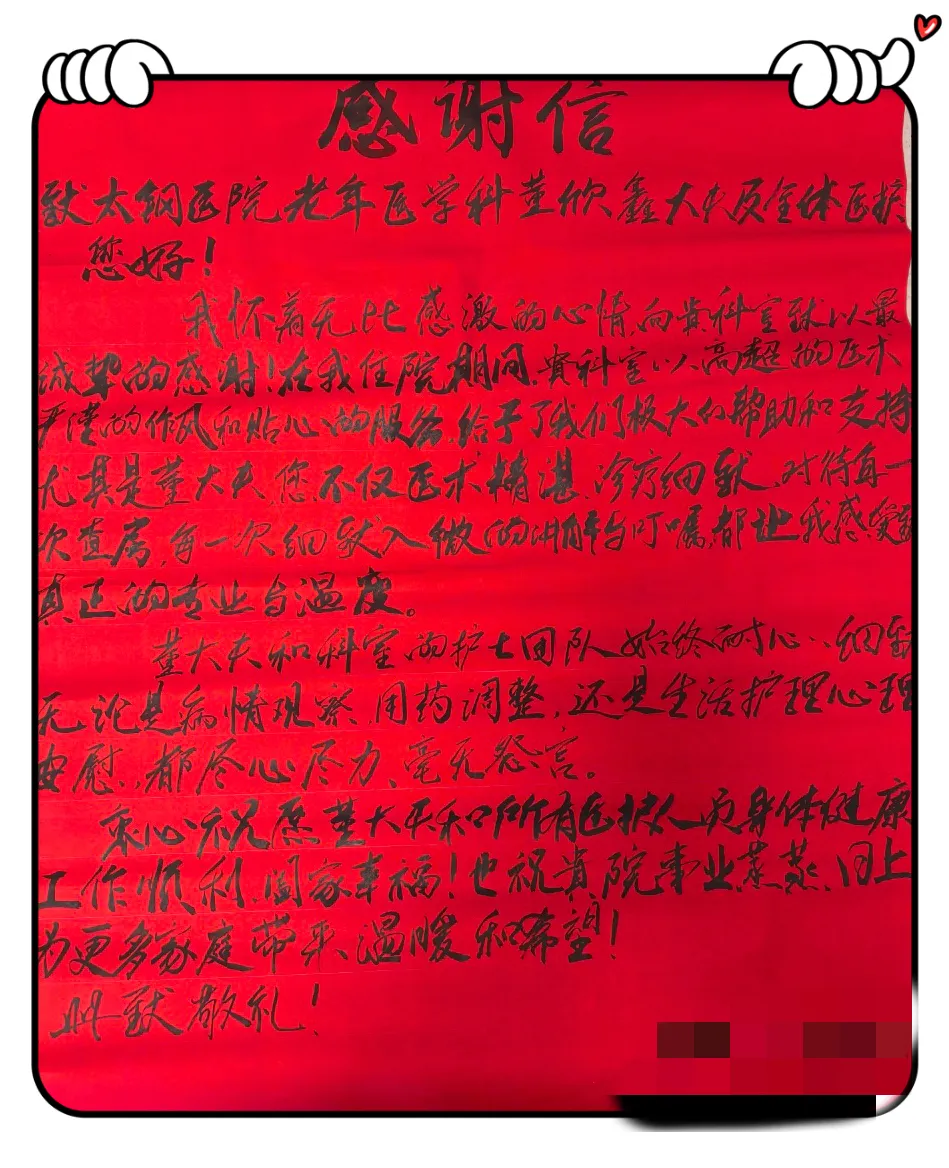 感谢信
致太钢医院老年医学科董欣鑫大夫及全体医护
您好!
我怀着无比感激的心情,向贵科室致以最
诚挚的感谢!在我住院期间,贵科室以高超的医术
严谨的作风和贴心的服务,给予了我们极大的帮助和支持
尤其是董大夫,您不仅医术精湛、诊疗细致,对待每一
次查房,每一次细致入微的讲解与叮嘱,都让我感受到
真正的专业与温度。
董大夫和科室的护士团队始终耐心、细致
无论是病情观察、用药调整,还是生活护理心理
安慰,都尽心尽力、毫无怨言。
衷心祝愿董大夫和所有医护人员身体健康
工作顺利,阖家幸福!也祝贵院事业蒸蒸日上
为更多家庭带来温暖和希望!
此致敬礼!